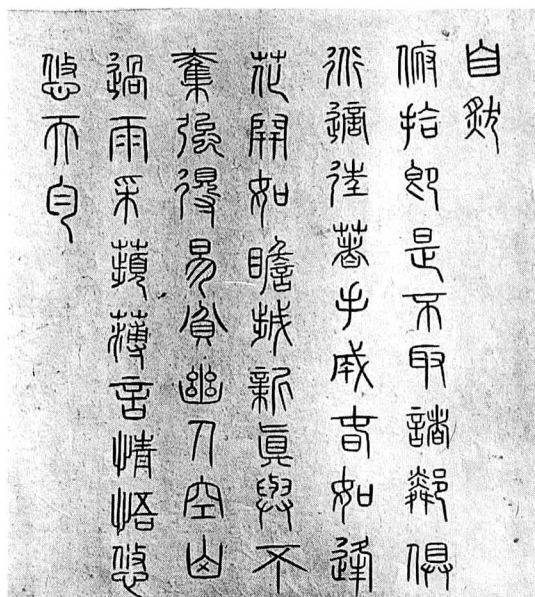 自然
俯拾即是不取諸鄰俱
道適往著手成春如逢
花開如瞻歲新眞與不
奪強得易貧幽人空山
過雨采蘋薄言情悟悠
悠天勻